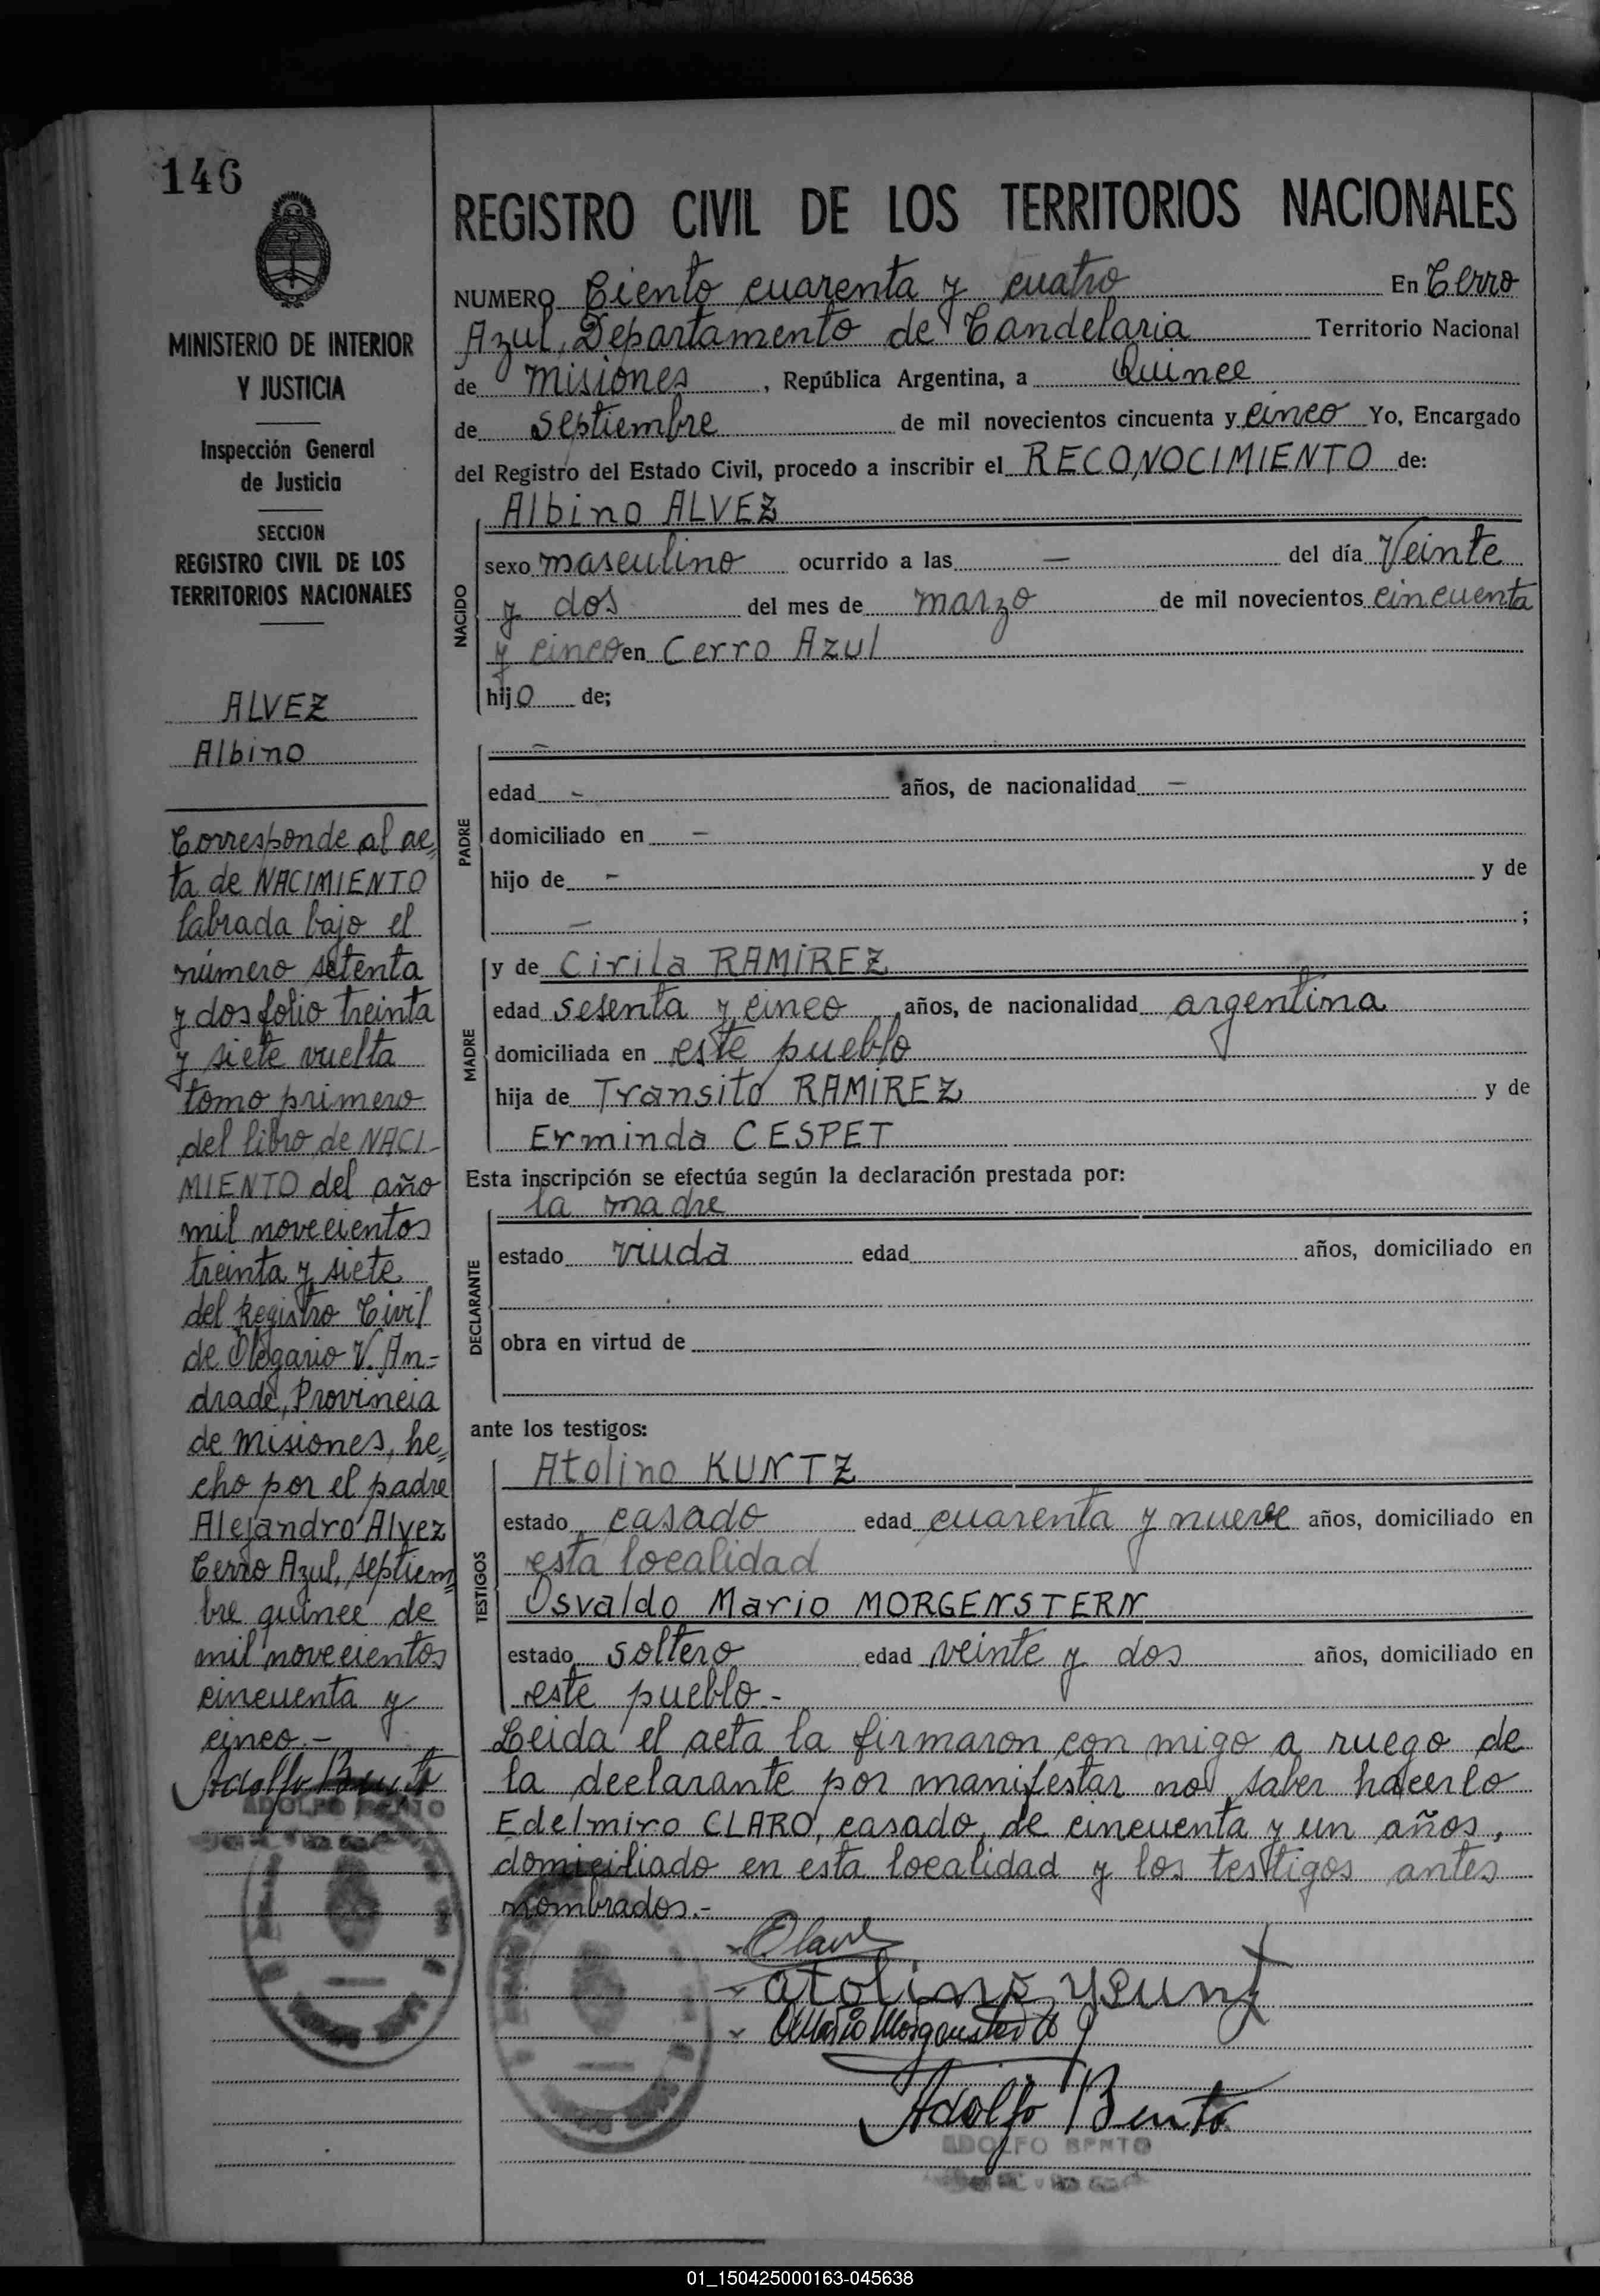 146
MINISTERIO DE INTERIOR
Y JUSTICIA
Inspección General
de Justicia
SECCION
REGISTRO CIVIL DE LOS
TERRITORIOS NACIONALES
ALVEZ
Albino
Corresponde al ac=
ta de NACIMIENTO
labrada bajo el
número setenta
y dos folio treinta
y siete vuelta
tomo primero
del libro de NACI-
MIENTO del año
mil novecientos
treinta y siete
del Registro Civil
de Olegario V. An=
drade, Provincia
de Misiones, he=
cho por el padre
Alejandro Alvez
Cerro Azul, septiem=
bre quince de
mil novecientos
cincuenta y
cinco.-
Adolfo Bento
ADOLFO BENTO
REGISTRO CIVIL DE LOS TERRITORIOS NACIONALES
NUMERO Ciento cuarenta y cuatro En Cerro
Azul, Departamento de Candelaria Territorio Nacional
de Misiones, República Argentina, a Quince
de Septiembre de mil novecientos cincuenta y cinco Yo, Encargado
del Registro del Estado Civil, procedo a inscribir el RECONOCIMIENTO de:
NACIDO
Albino ALVEZ
sexo masculino ocurrido a las — del día Veinte
y dos del mes de marzo de mil novecientos cincuenta
y cinco en Cerro Azul
hijo de;
PADRE
-
edad - años, de nacionalidad -
domiciliado en -
hijo de - y de
- ;
MADRE
y de Cirila RAMIREZ
edad sesenta y cinco años, de nacionalidad argentina
domiciliada en este pueblo
hija de Transito RAMIREZ y de
Erminda CESPET
Esta inscripción se efectúa según la declaración prestada por:
DECLARANTE
la madre
estado viuda edad años, domiciliado en
obra en virtud de
ante los testigos:
TESTIGOS
Atolino KUNTZ
estado casado edad cuarenta y nueve años, domiciliado en
esta localidad
Osvaldo Mario MORGENSTERN
estado soltero edad veinte y dos años, domiciliado en
este pueblo.-
Leida el acta la firmaron con migo a ruego de
la declarante por manifestar no saber hacerlo
Edelmiro CLARO, casado, de cincuenta y un años,
domiciliado en esta localidad y los testigos antes
nombrados.-
Adolfo Bento
ADOLFO BENTO
01_150425000163-045638